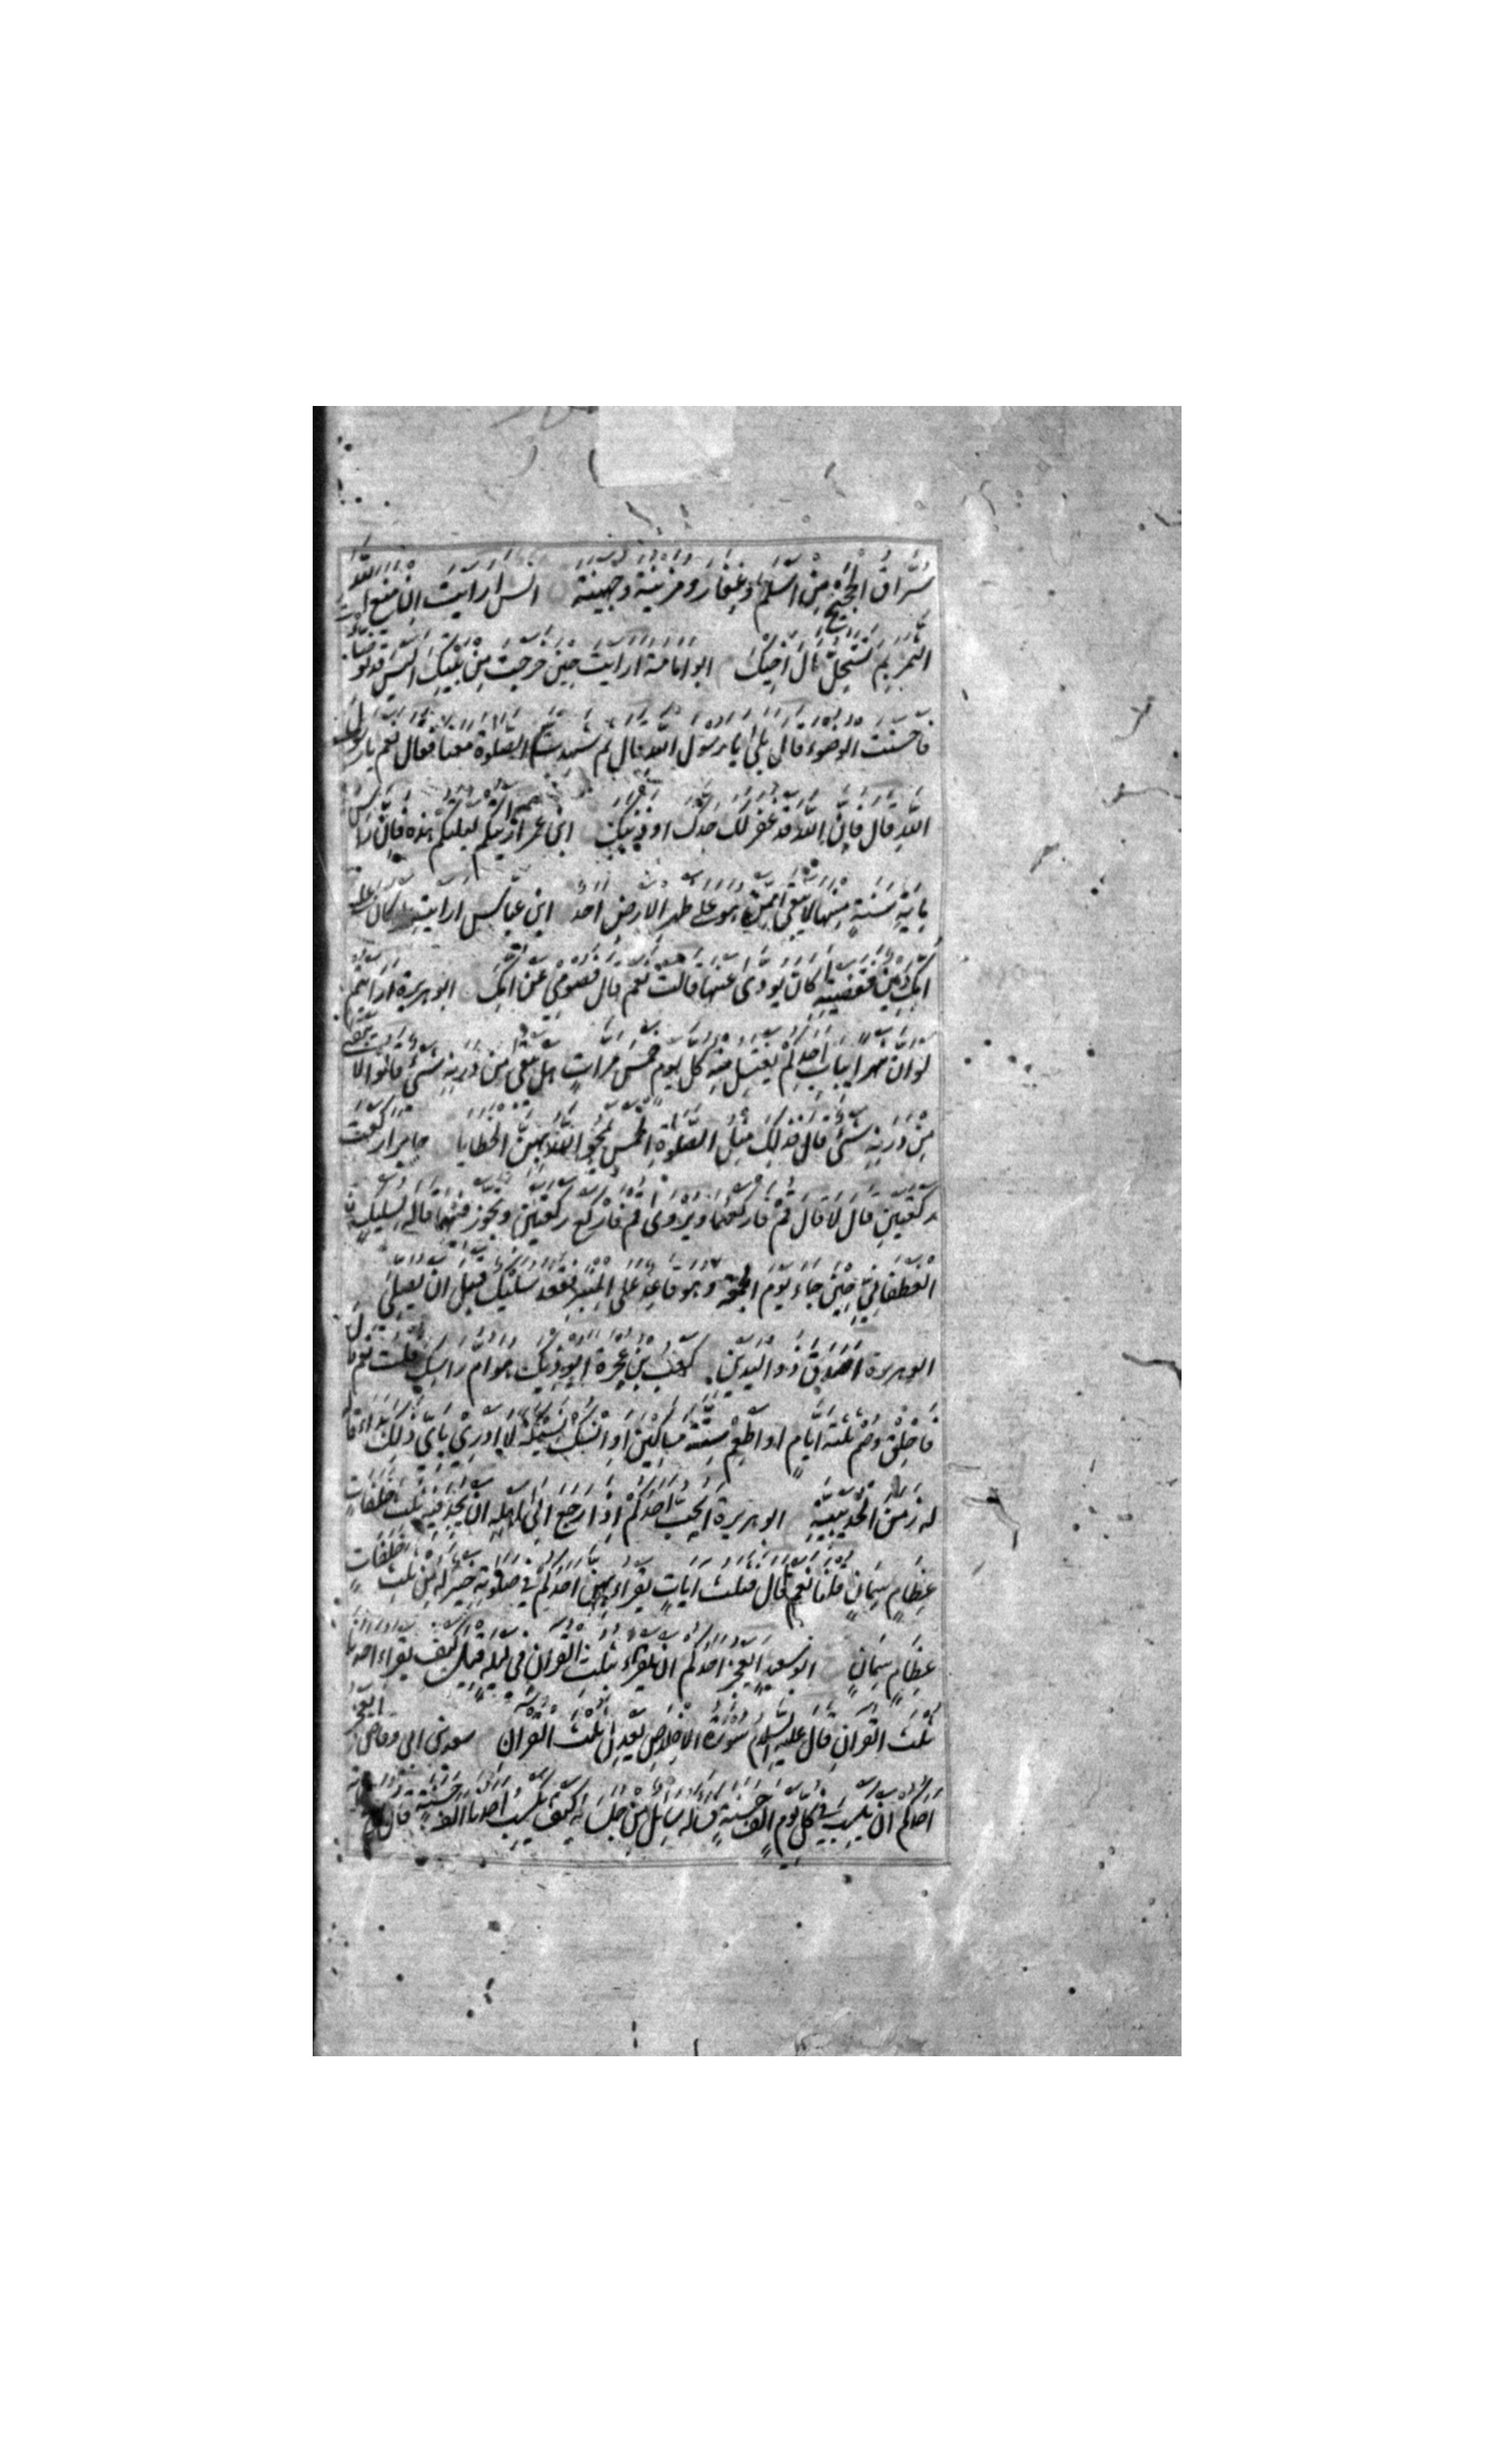 سُرَّاقُ الحَجِيجِ مِنْ أَسْلَمَ وَغِفَارَ وَمُزَيْنَةَ وَجُهَيْنَةَ انس ارايت ان منع الله
الثمر بم تستحل مال اخيك ابو امامة ارايت حين خرجت من بيتك اليس قد توضات
فاحسنت الوضوء قال بلى يا رسول الله قال ثم شهدت الصلوة معنا فقال نعم يا رسول
الله قال فان الله قد غفر لك حدك او ذنبك ابن عمر ارايتكم ليلتكم هذه فان راس
ماية سنة منها لا يبقى ممن هو على ظهر الارض احد ابن عباس ارايت لو كان على
امك دين فقضيته اكان يودى عنها قالت نعم قال فصومي عن امك ابو هريرة ارايتم
لو ان نهرا بباب احدكم يغتسل منه كل يوم خمس مرات هل يبقى من درنه شئ قالوا لا يبقى
من درنه شئ قال فذلك مثل الصلوة الخمس يمحو الله بهن الخطايا جابر اركعت
ركعتين قال لا قال قم فاركعهما ويروى قم فاركع ركعتين وتجوز فيهما قاله لسليك
الغطفاني حين جاء يوم الجمعة وهو قاعد على المنبر فقعد سليك قبل ان يصلي
ابو هريرة اصدق ذو اليدين كعب بن عجرة ايوذيك هوام راسك قلت نعم قال
فاحلق وصم ثلثة ايام او اطعم ستة مساكين او انسك نسيكة لا ادري باي ذلك بدا قاله
له زمن الحديبية ابو هريرة ايحب احدكم اذا رجع الى اهله ان يجد فيه ثلث خلفات
عظام سمان قلنا نعم قال فثلث ايات يقراء بهن احدكم في صلوته خير له من ثلث خلفات
عظام سمان ابو سعيد ايعجز احدكم ان يقراء بثلث القران في ليلة قيل كيف يقراء احدنا
ثلث القران قال عليه السلام سورة الاخلاص يعدل ثلث القران سعد بن ابي وقاص ايعجز
احدكم ان يكسب في كل يوم الف حسنة فساله سايل من جلسائه كيف يكسب احدنا الف حسنة قال